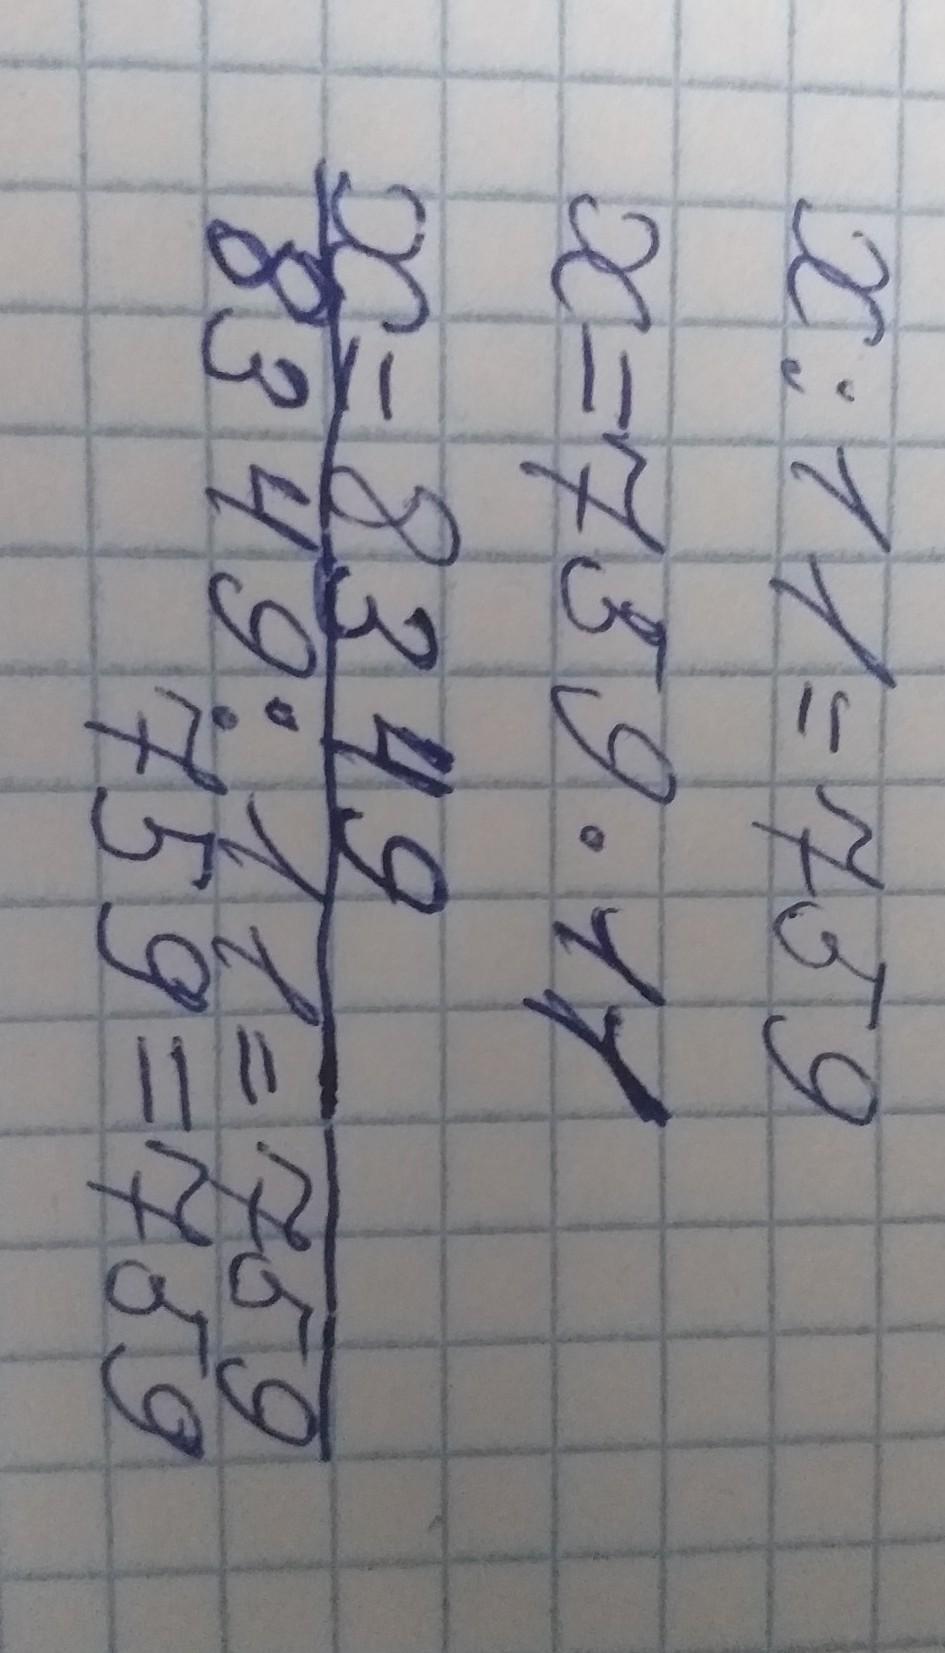 x:11=759
x=759·11
x=8349
8349:11=759
759=759